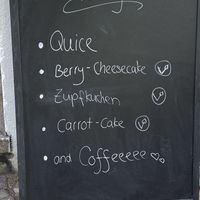 • Quice
• Berry-Cheesecake
• Zupfkuchen
• Carrot-Cake
• and Coffeeeee